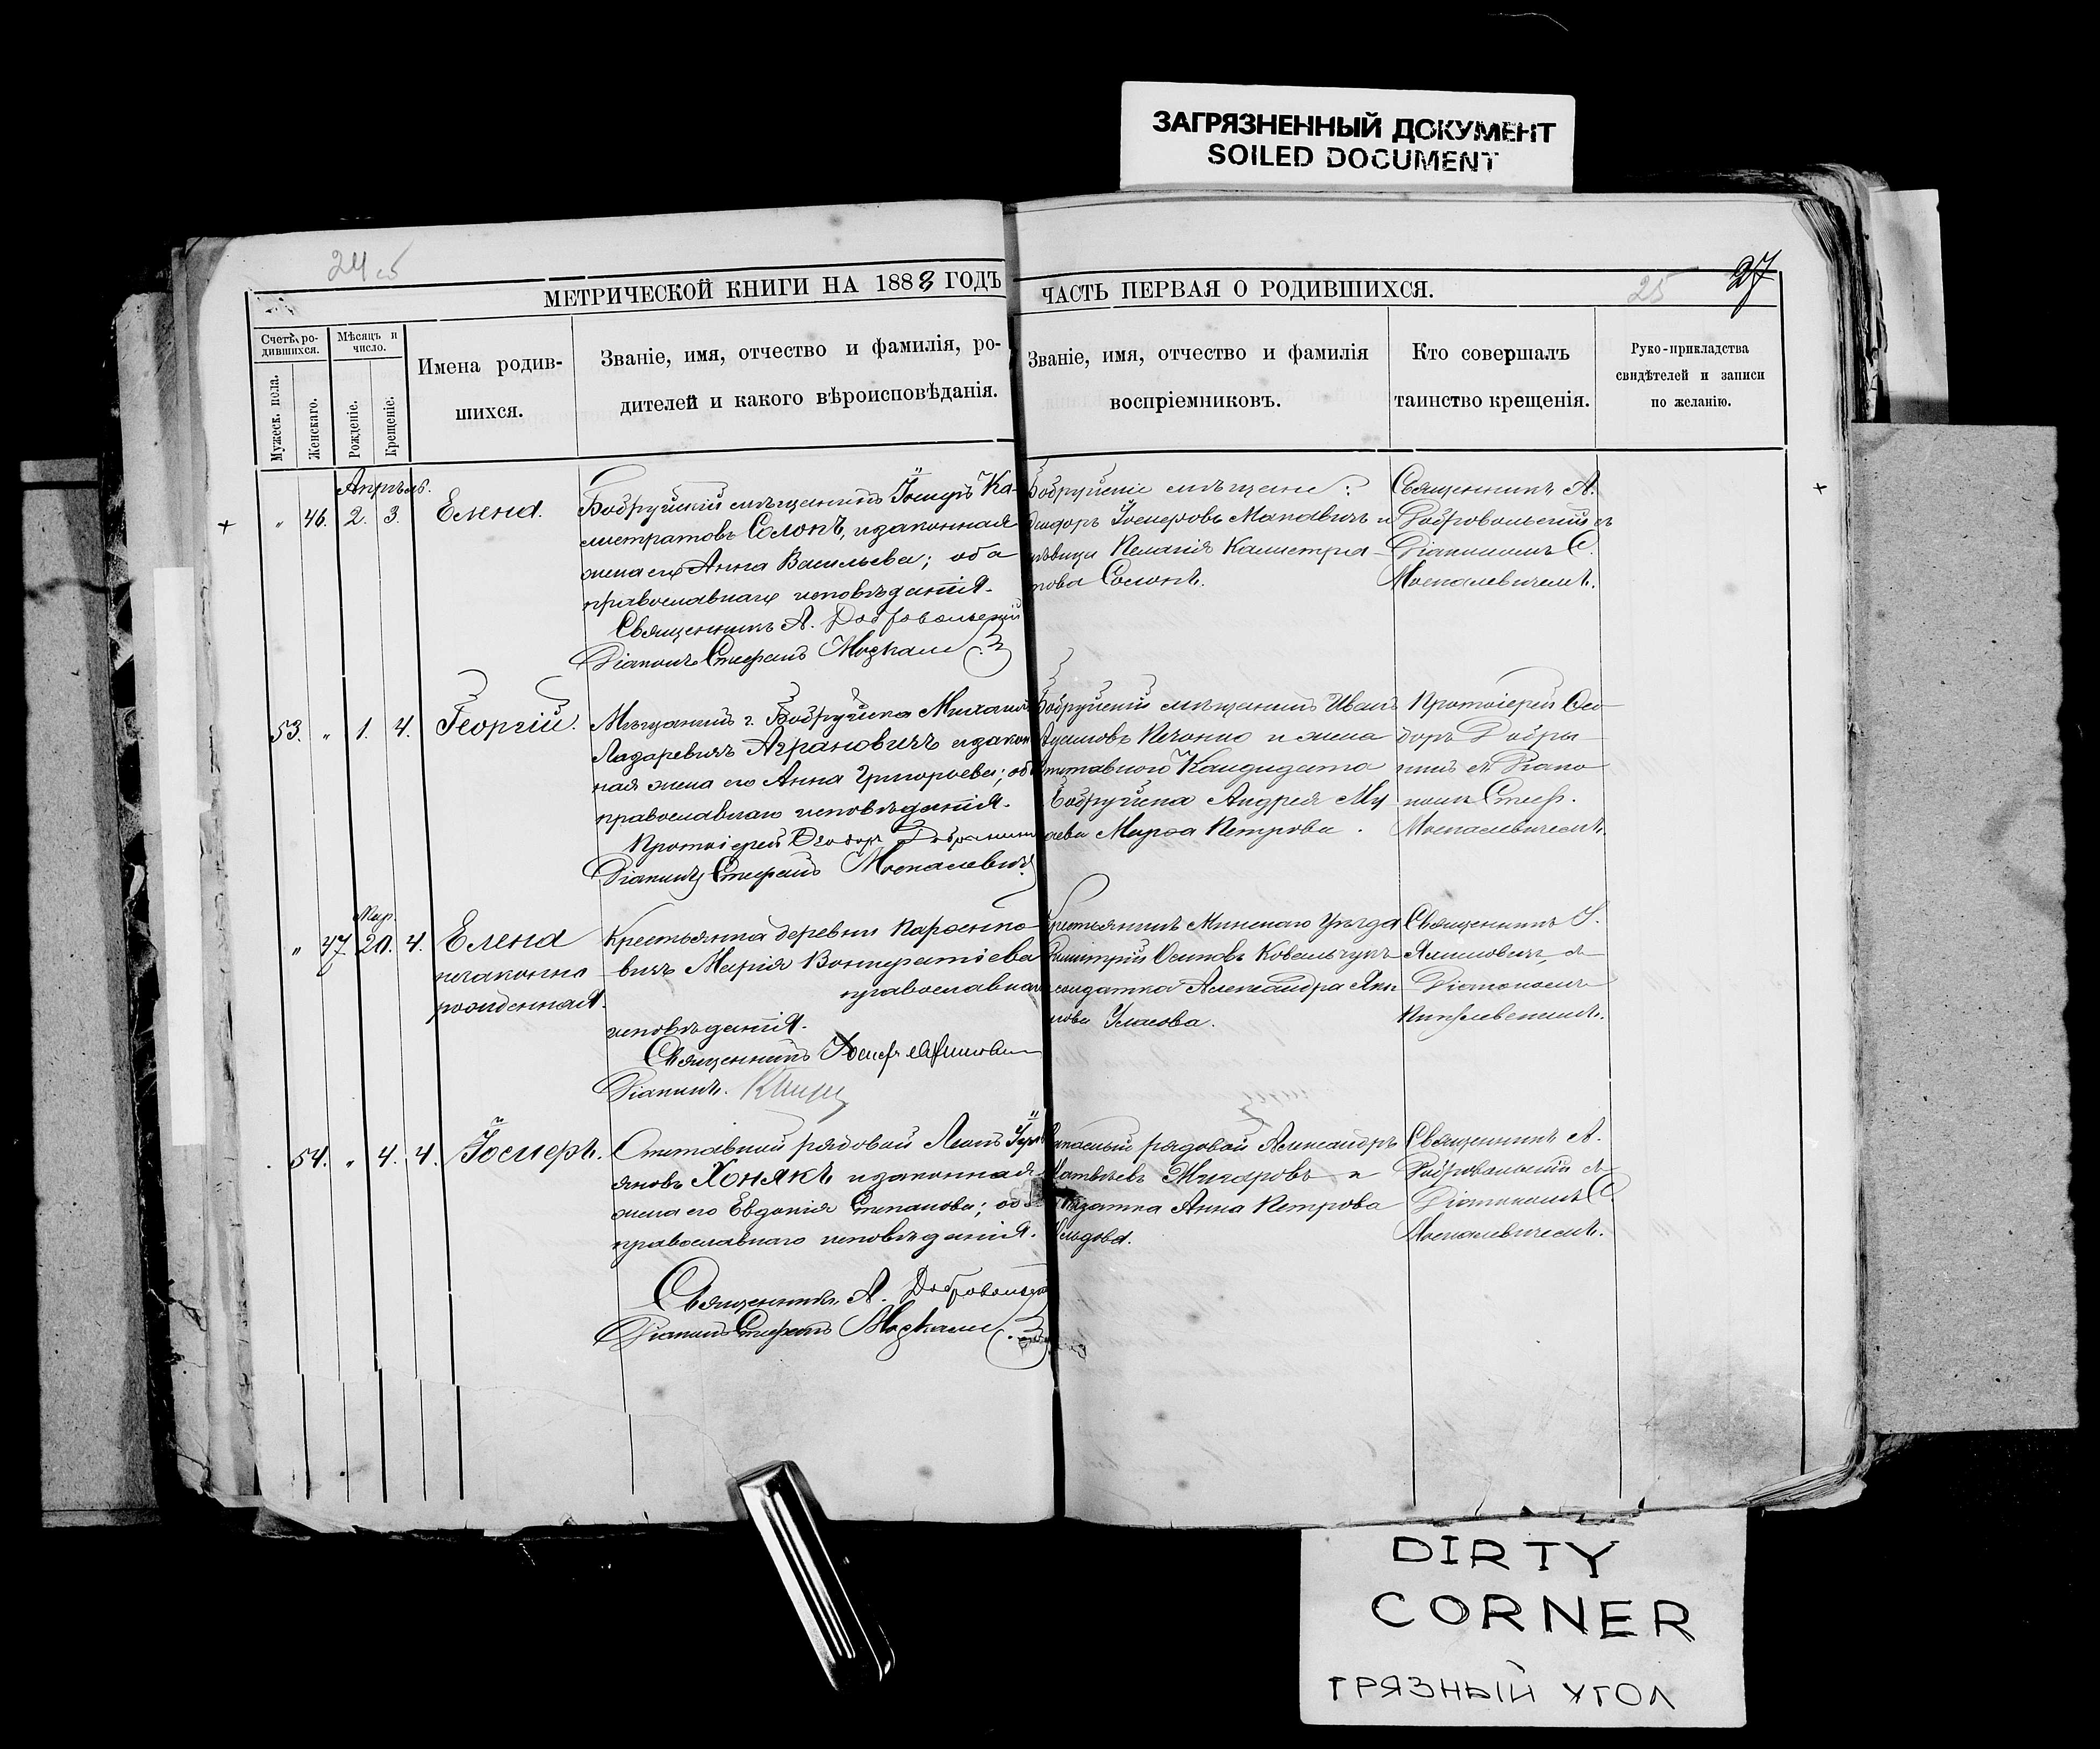 ЗАГРЯЗНЕННЫЙ ДОКУМЕНТ
SOILED DOCUMENT
24 об
МЕТРИЧЕСКОЙ КНИГИ НА 1883 ГОДЪ
ЧАСТЬ ПЕРВАЯ О РОДИВШИХСЯ.
25
27
Счетъ ро-
дившихся.
Мѣсяцъ и
число.
Мужеск. пола.
Женскаго.
Рожденіе.
Крещеніе.
Имена родив-
шихся.
Званіе, имя, отчество и фамилія, ро-
дителей и какого вѣроисповѣданія.
Званіе, имя, отчество и фамилія
воспріемниковъ.
Кто совершалъ
таинство крещенія.
Руко-прикладства
свидѣтелей и записи
по желанію.
Апрѣль.
" 46. 2. 3. Елена.
Бобруйскій мѣщанинъ Іосифъ Ка-
листратовъ Солонъ, и законная
жена его Анна Васильева; оба
православнаго исповѣданія.
Священникъ А. Добровольскій
Діаконъ Стефанъ
Бобруйскіе мѣщане:
Іосифовъ и
дѣвица Пелагія Калистра-
това Солонъ.
Священникъ А.
Добровольскій съ
Діакономъ С.
Москалевичемъ.
53. " 1. 4. Георгій.
Мѣщанинъ г. Бобруйска Михаилъ
Лазаревичъ Аграновичъ и закон
ная жена его Анна Григорьева; оба
православнаго исповѣданія.
Протоіерей
Діаконъ Стефанъ Москалевичъ
Бобруйскій мѣщанинъ Иванъ
и жена
отставного Кандидата
Бобруйска Андрея
Марѳа Петрова.
Протоіерей Ѳео-
доръ
съ Діако-
номъ Стеф.
Москалевичемъ.
Мар.
" 47. 20. 4. Елена
незаконно
рожденная.
Крестьянка деревни Пархимко-
вичъ Марія Вонифатіева
православнаго
исповѣданія.
Священникъ Іосифъ
Діаконъ.
Крестьянинъ Минскаго Уѣзда
Димитрій Осиповъ Ковальчукъ
солдатка Александра
Власова.
Священникъ І.
съ
Діакономъ
54. " 4. 4. Іосифъ.
Отставной рядовой
яновъ Хонякъ и законная
жена его Евдокія Степанова; оба
православнаго исповѣданія.
Священникъ А. Добровольскій
Діаконъ Стефанъ
Запасный рядовой Александръ
Матвѣевъ и
солдатка Анна Петрова
Священникъ А.
Добровольскій съ
Діакономъ С.
Москалевичемъ.
DIRTY
CORNER
ГРЯЗНЫЙ УГОЛ